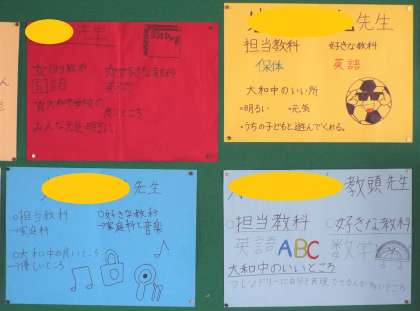 先生
☆担当教科 ☆好きな教科
国語
☆大和中学校の
良いところ
みんな元気・明るい
先生
担当教科 好きな教科
保体 英語
大和中のいい所
・明るい ・元気
・うちの子どもと遊んでくれる。
先生
○担当教科 ○好きな教科
→家庭科 →家庭科と音楽
○大和中の良いところ
→優しいところ
教頭先生
○担当教科 ○好きな教科
英語 ABC 数学
大和中のいいところ
フレンドリーに自分を表現できる人が多いところ